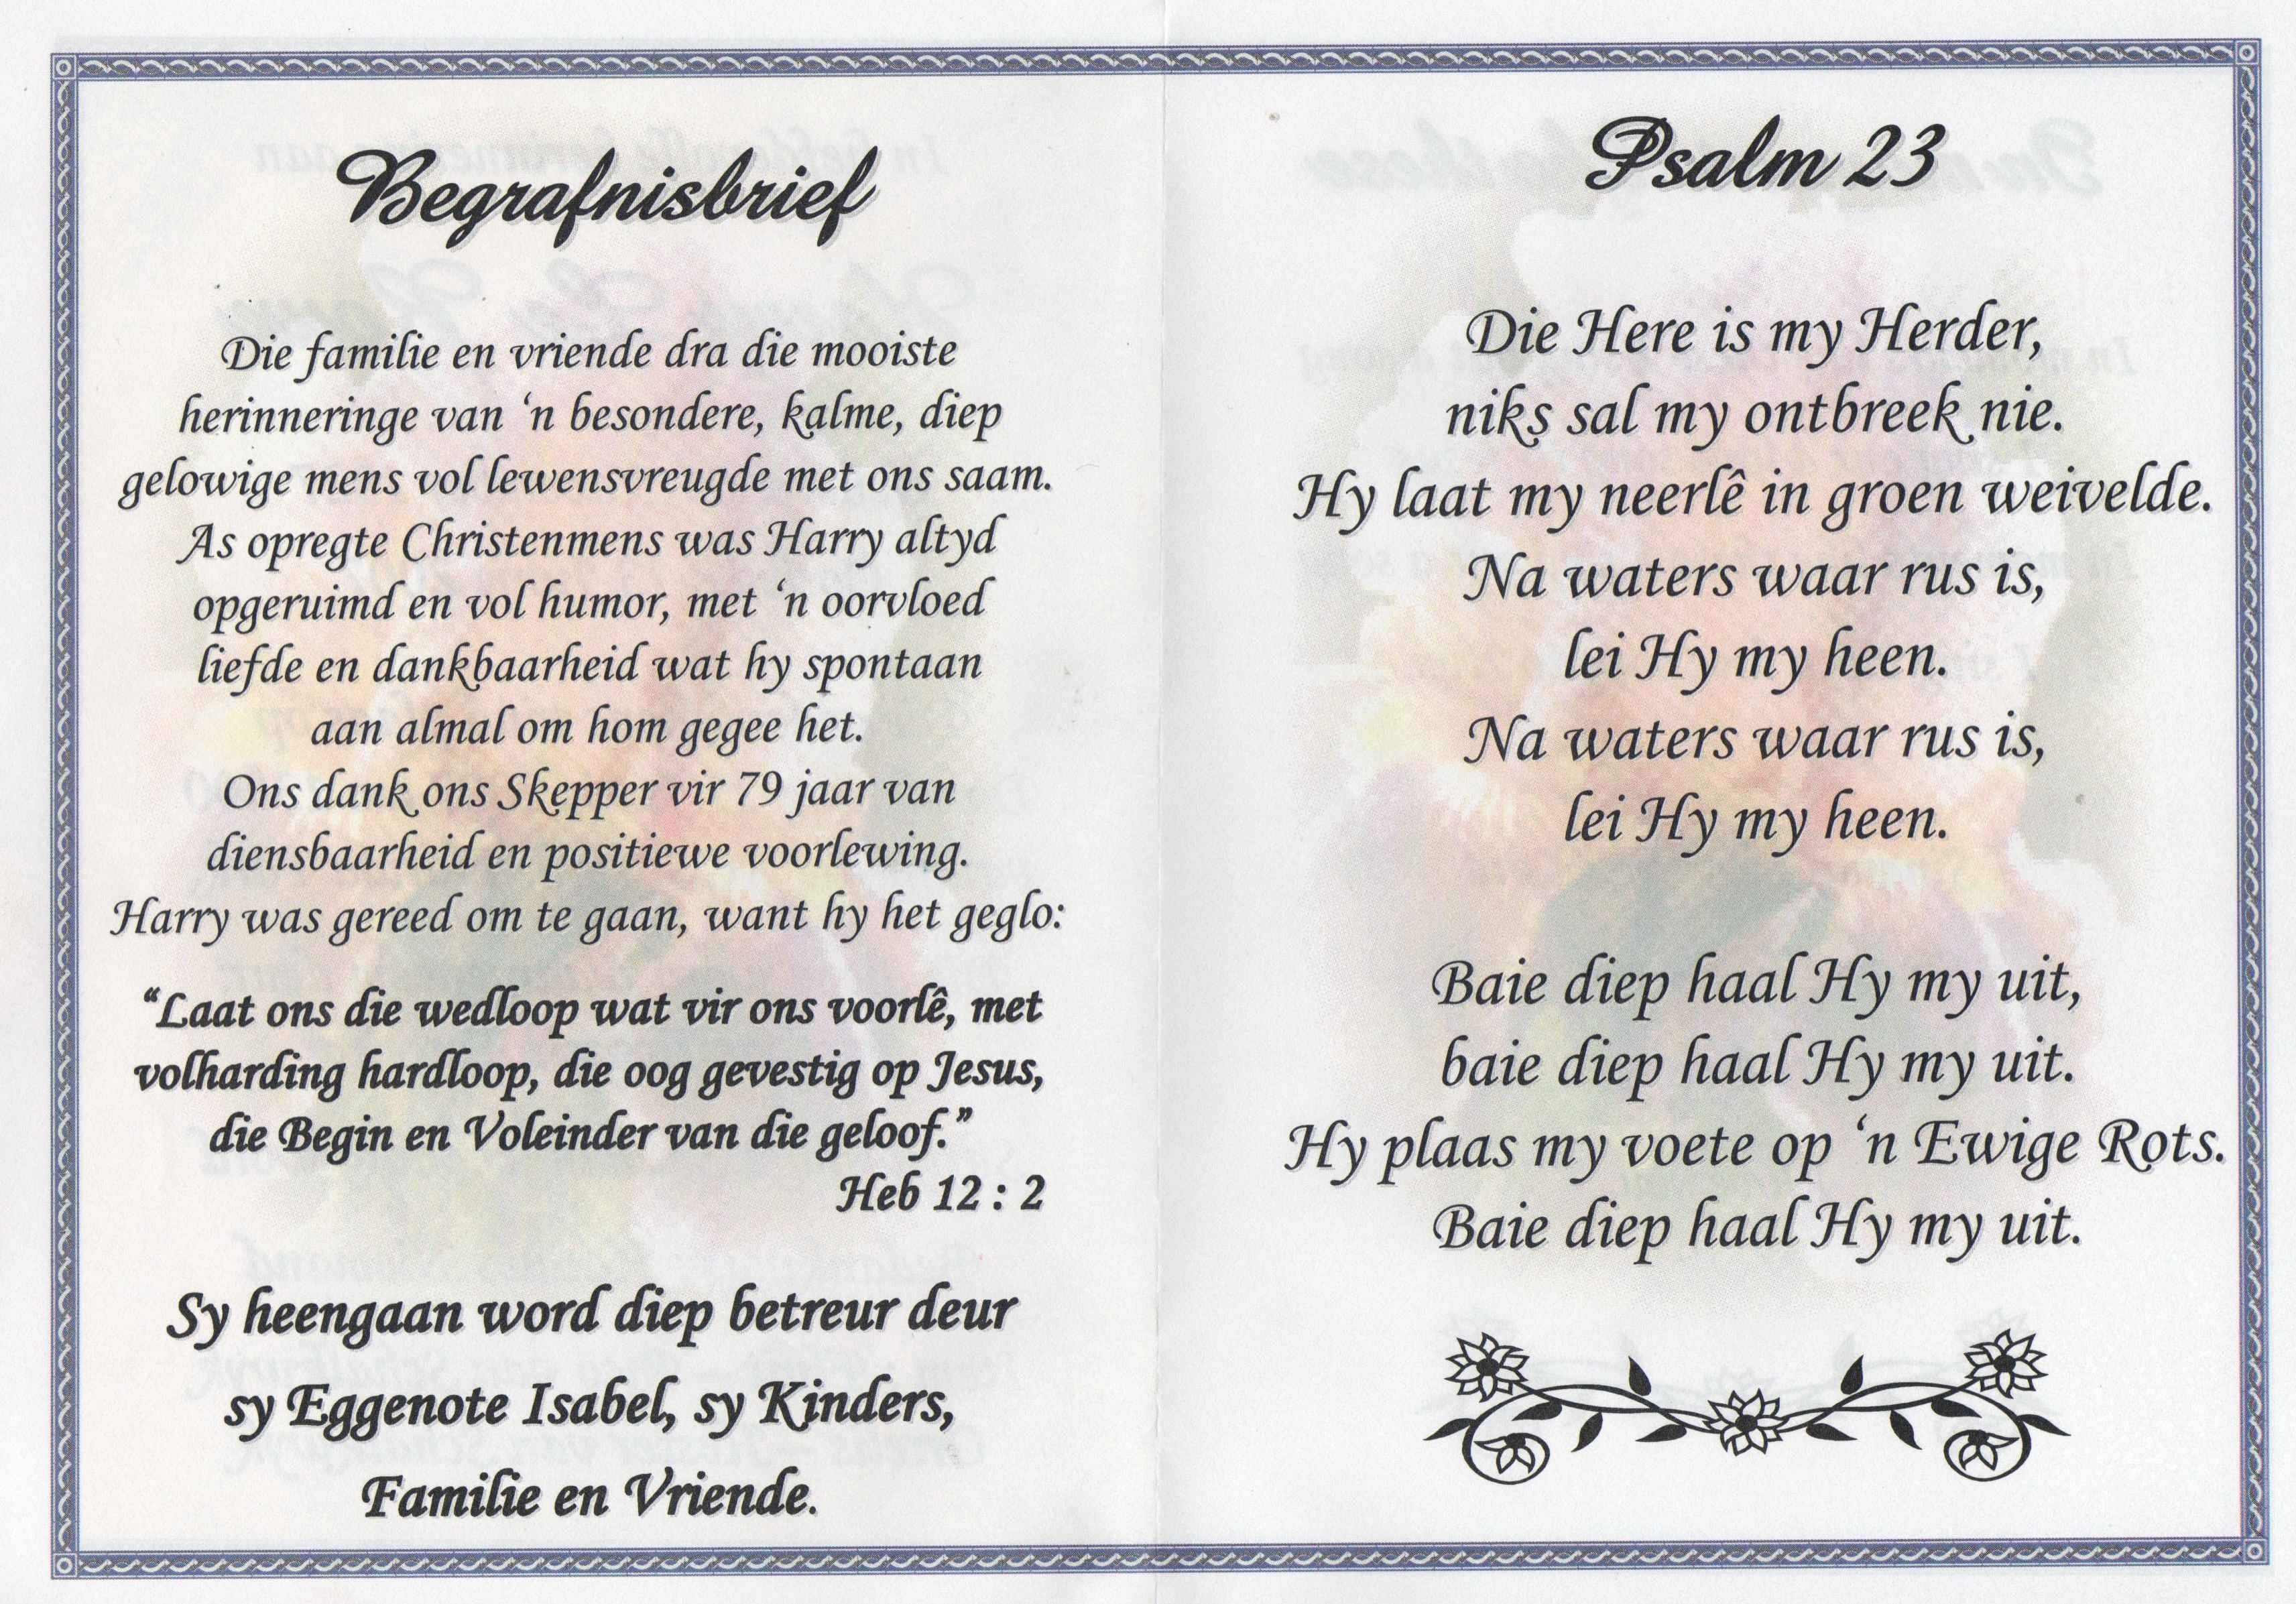 Begrafnisbrief
Die familie en vriende dra die mooiste
herinneringe van ‘n besondere, kalme, diep
gelowige mens vol lewensvreugde met ons saam.
As opregte Christenmens was Harry altyd
opgeruimd en vol humor, met ‘n oorvloed
liefde en dankbaarheid wat hy spontaan
aan almal om hom gegee het.
Ons dank ons Skepper vir 79 jaar van
diensbaarheid en positiewe voorlewing.
Harry was gereed om te gaan, want hy het geglo:
“Laat ons die wedloop wat vir ons voorlê, met
volharding hardloop, die oog gevestig op Jesus,
die Begin en Voleinder van die geloof.”
Heb 12 : 2
Sy heengaan word diep betreur deur
sy Eggenote Isabel, sy Kinders,
Familie en Vriende.
Psalm 23
Die Here is my Herder,
niks sal my ontbreek nie.
Hy laat my neerlê in groen weivelde.
Na waters waar rus is,
lei Hy my heen.
Na waters waar rus is,
lei Hy my heen.
Baie diep haal Hy my uit,
baie diep haal Hy my uit.
Hy plaas my voete op ‘n Ewige Rots.
Baie diep haal Hy my uit.